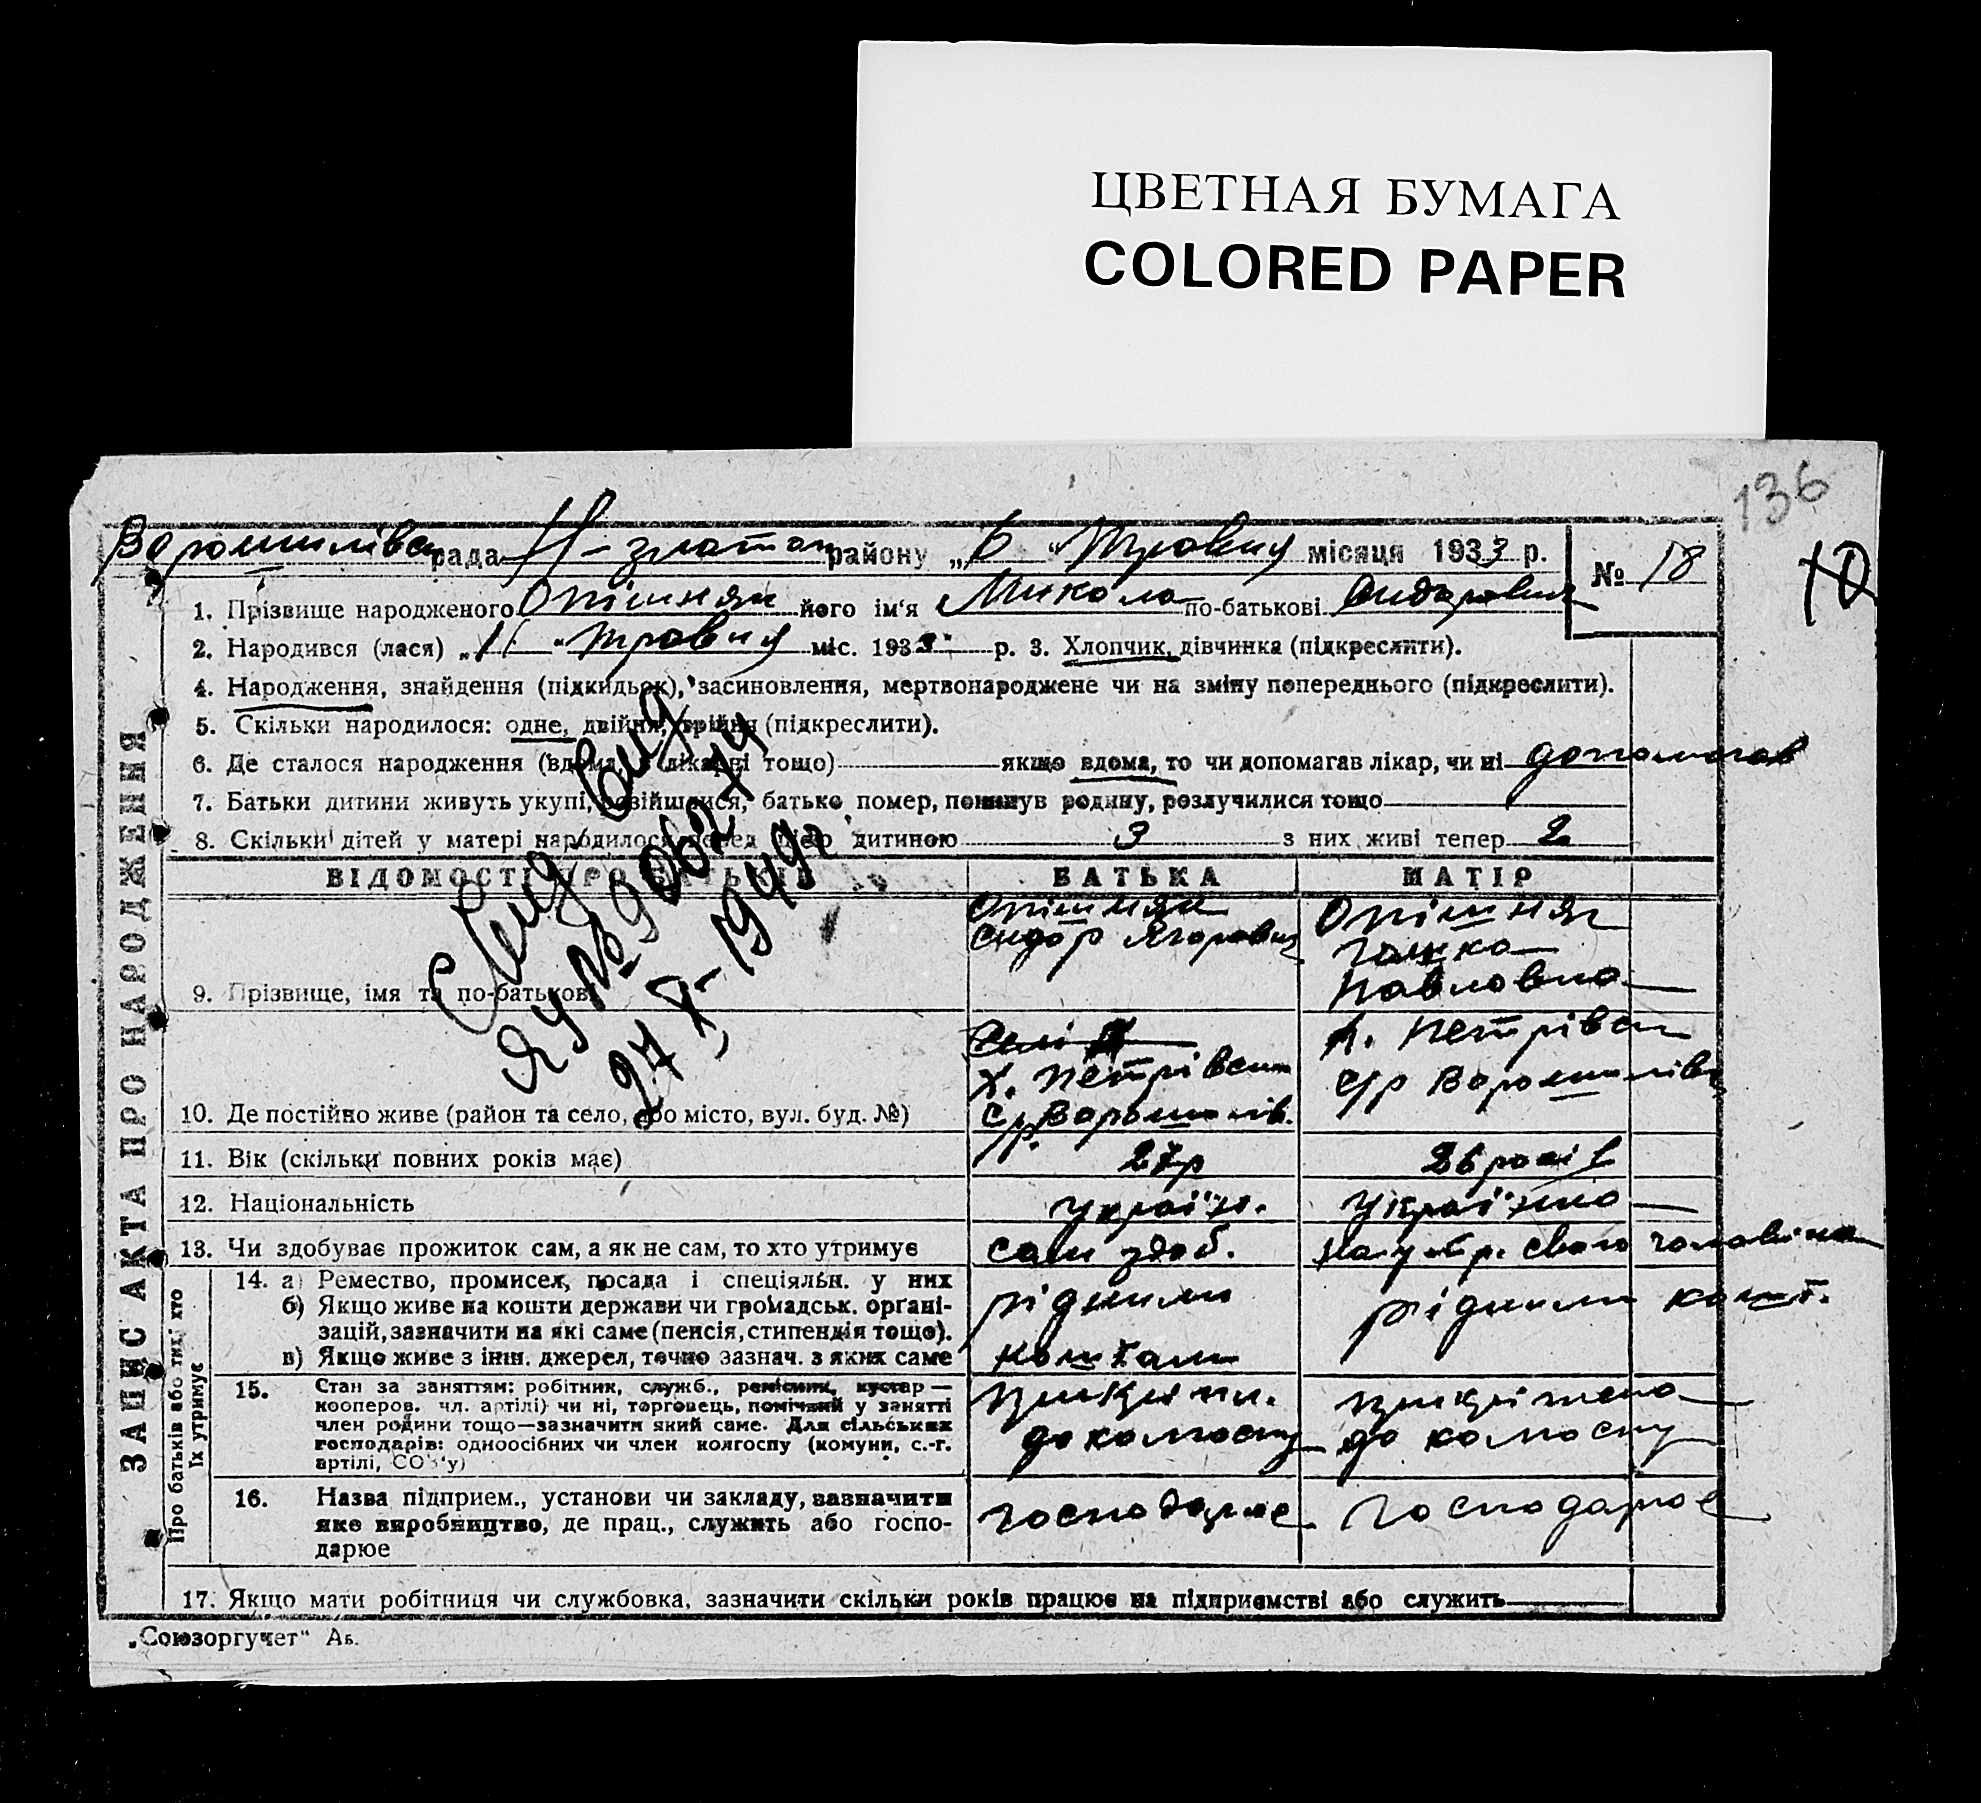 ЦВЕТНАЯ БУМАГА
COLORED PAPER
136
Ворошилівськ рада Н-златоп району „6“ травня місяця 1933 р. № 18
10
1. Прізвище народженого Опішняк його ім'я Микола по-батькові Сидорович
2. Народився (лася) „ “ травня міс. 1933 р. 3. Хлопчик, дівчинка (підкреслити).
4. Народження, знайдення (підкидьок), засиновлення, мертвонароджене чи на зміну попереднього (підкреслити).
5. Скільки народилося: одне, двійня, трійня (підкреслити).
6. Де сталося народження (вдома, в лікарні тощо) якщо вдома, то чи допомагав лікар, чи ні допомогав
7. Батьки дитини живуть укупі, розійшлися, батько помер, покинув родину, розлучилися тощо
8. Скільки дітей у матері народилося перед цією дитиною 3 з них живі тепер 2
ВІДОМОСТІ ПРО БАТЬКІВ БАТЬКА МАТІР
9. Прізвище, імя та по-батькові
Опішняк
Сидор Ягорович
Опішняк
Ганка
Павловна
10. Де постійно живе (район та село, або місто, вул. буд. №)
х. Петрівськ
с/р Ворошилів.
х. Петрівськ
с/р Ворошилівс
11. Вік (скільки повних років має) 27р 26 років
12. Національність україн. українка
13. Чи здобуває прожиток сам, а як не сам, то хто утримує сам здоб. на утр. свого чоловіка
14. а) Ремество, промисел, посада і спеціяльн. у них
б) Якщо живе на кошти держави чи громадськ. органі-
зацій, зазначити на які саме (пенсія, стипендія тощо).
в) Якщо живе з інш. джерел, точно зазнач. з яких саме
рідними
коштами
рідними кошт.
15. Стан за заняттям: робітник, служб., ремісник, кустар —
кооперов. чл. артілі) чи ні, торговець, помічний у занятті
член родини тощо—зазначити який саме. Для сільських
господарів: одноосібних чи член колгоспу (комуни, с.-г.
артілі, СОЗ'у)
до колгоспу
до колгоспу
16. Назва підприєм., установи чи закладу, зазначити
яке виробництво, де прац., служить або госпо-
дарює
господарює господарює
17. Якщо мати робітниця чи службовка, зазначити скільки років працює на підприємстві або служить
ЗАПИС АКТА ПРО НАРОДЖЕННЯ
Про батьків або тих, хто
їх утримує
„Союзоргучет“ Аб.
ЯУ №
27 X- 1949г